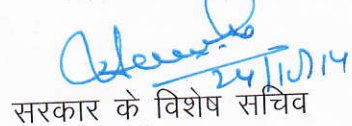 24/10/14
सरकार के विशेष सचिव